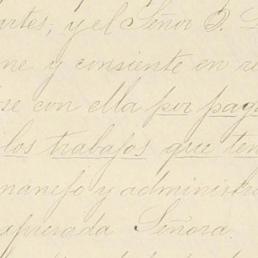 artes; y el Señor D.
ne y consiente en re
se con ella por pag
los trabajos que ten
manejo y administra
xpresada Señora.